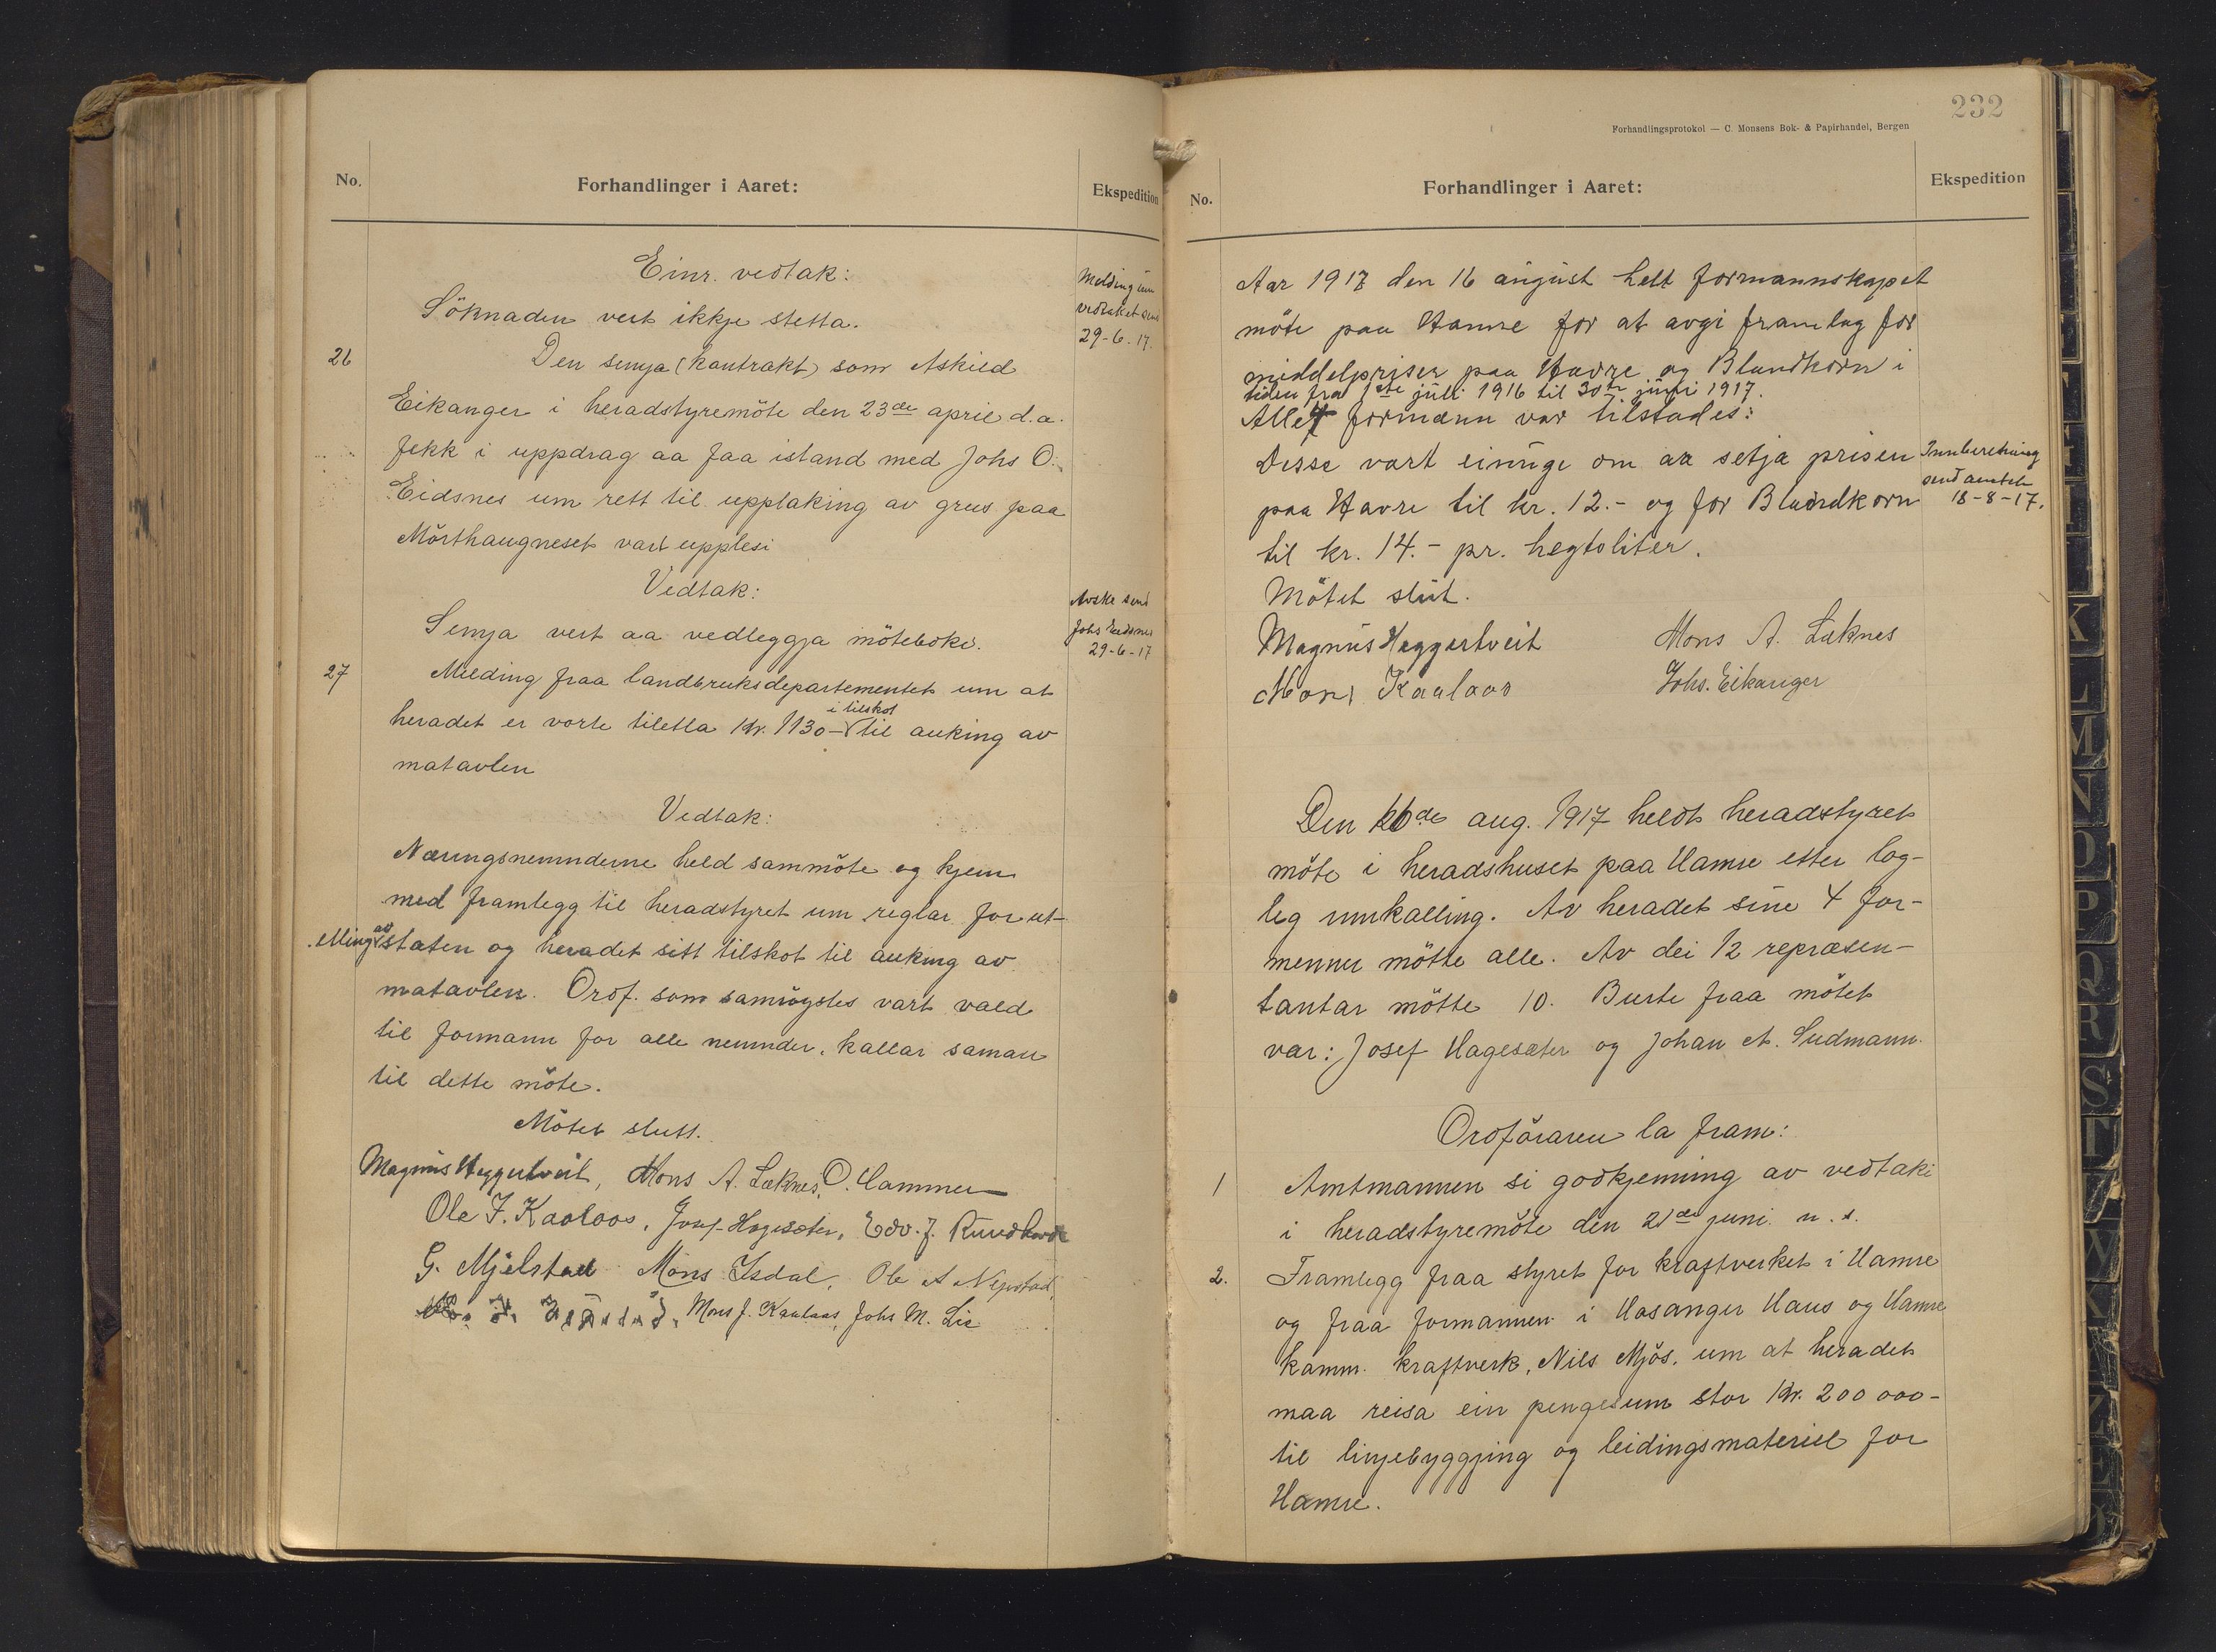 No.
Forhandlinger i Aaret:
Ekspedition
Einr. vedtak:
Söknaden vert ikkje stetta.
Melding um
vedtaket send
29-6-17.
26
Den semja (kontrakt) som Askild
Eikanger i heradstyremöte den 23de april d.a.
fekk i uppdrag aa faa istand med Johs O.
Eidsnes um rett til upptaking av grus paa
Mörthaugneset vart upplesi
Vedtak:
Semja vert aa vedleggja möteboki.
Avskr. send
Johs Eidsnes
29-6-17
27
Melding fraa landbruksdepartementet um at
heradet er vorte tiletla Kr. 1130- i tilskot til auking av
matavlen
Vedtak:
Næringsnemnderne held sammöte og kjem
med framlegg til heradstyret um reglar for ut-
etling av staten og heradet sitt tilskot til auking av
matavlen. Ordf. som samröystes vart vald
til formann for alle nemnder, kallar saman
til dette möte.
Mötet slutt.
Magnus Heggertveit, Mons A. Læknes, O. Hammer
Ole J. Kaalaas, Josef Hagesæter, Edv. J.
G. Mjelstad Mons Isdal, Ole A
Mons J. Kaalaas, Johs M. Lie
232
Forhandlingsprotokol — C. Monsens Bok- & Papirhandel, Bergen
No.
Forhandlinger i Aaret:
Ekspedition
Aar 1917 den 16 august helt formannskapet
möte paa Hamre for at avgi framlag for
middelpriser paa Havre og Blandkorn i
tiden fra 1ste juli 1916 til 30te juni 1917.
Alle 4 formænn var tilstades:
Disse vart einige om aa setja prisen
paa Havre til kr. 12.- og for Blandkorn
til kr. 14.- pr. hegtoliter.
Innberetning
send amtet
18-8-17.
Mötet slut.
Magnus Heggertveit Mons A. Læknes
Mons Kaalaas Johs. Eikanger
Den 26de aug. 1917 heldt heradstyret
möte i heradshuset paa Hamre etter log-
leg innkalling. Av heradet sine 4 for-
menner mötte alle. Av dei 12 repræsen-
tantar mötte 10. Burte fraa mötet
var: Josef Hagesæter og Johan A. Sudmann.
Ordföraren la fram:
1
Amtmannen si godkjenning av vedtaki
i heradstyremöte den 21de juni n. s.
2.
Framlegg fraa styret for kraftverket i Hamre
og fraa formannen i Hosanger Haus og Hamre
komm. kraftverk, Nils Mjös, um at heradet
maa reisa ein pengesum stor Kr. 200 000-
til linjebyggjing og leidingsmateriell for
Hamre.